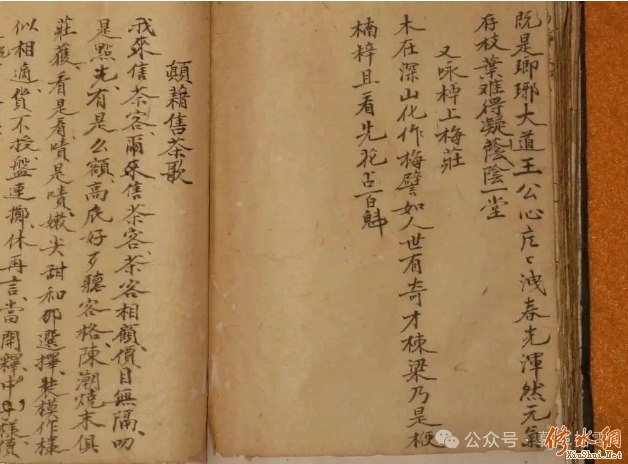 既是瑯琊大道王公心庄〻洩春光渾然元氣
存枝葉难得凝蔭陰一堂
又咏樟上梅莊
木在深山化作梅譬如人世有奇才棟梁乃是梗
楠梓且看先花占百魁
顛藉售茶歌
我來售茶客、爾來售茶客、茶客相顧、價目無隔、叨
是點光、有是么額、高底好歹聽客格、陳潮燒末俱
莊獲、看是看、嘖是嘖、嫩尖甜和那選擇、裝模作樣
似相適、貨不投盤連擲、休再言、當開釋、中
公众号
修水網
XiuShui.Net